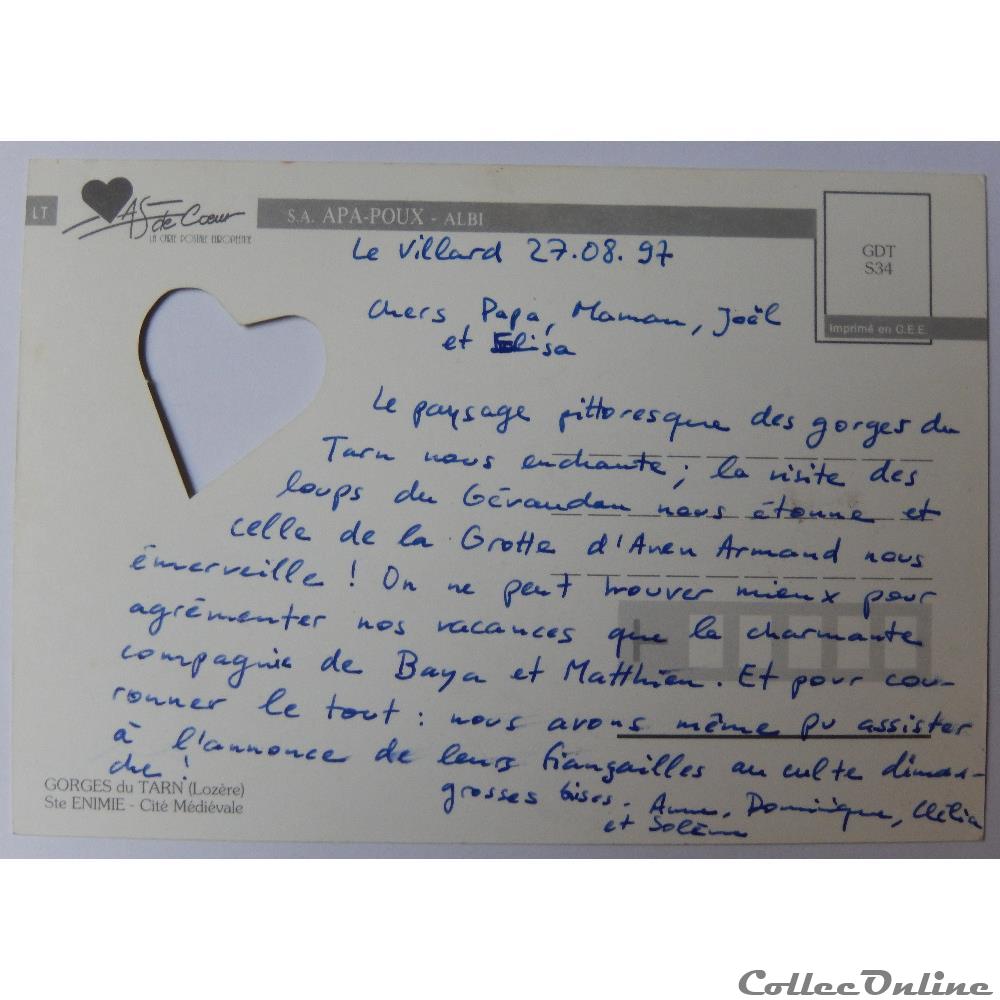 LT
As de Coeur
LA CARTE POSTALE EUROPEENNE
S.A. APA-POUX - ALBI
GDT
S34
Imprimé en C.E.E.
Le Villard 27.08.97
Chers Papa, Maman, Joël
et Elisa
Le paysage pittoresque des gorges du
Tarn nous enchante ; la visite des
loups du Gévaudan nous étonne et
celle de la Grotte d'Aven Armand nous
émerveille ! On ne peut trouver mieux pour
agrémenter nos vacances que la charmante
compagnie de Baya et Matthieu. Et pour cou-
ronner le tout : nous avons même pu assister
à l'annonce de leurs fiançailles au culte diman-
che !
grosses bises. Anne, Dominique, Clélia
et Solène
GORGES du TARN (Lozère)
Ste ENIMIE - Cité Médiévale
CollecOnline